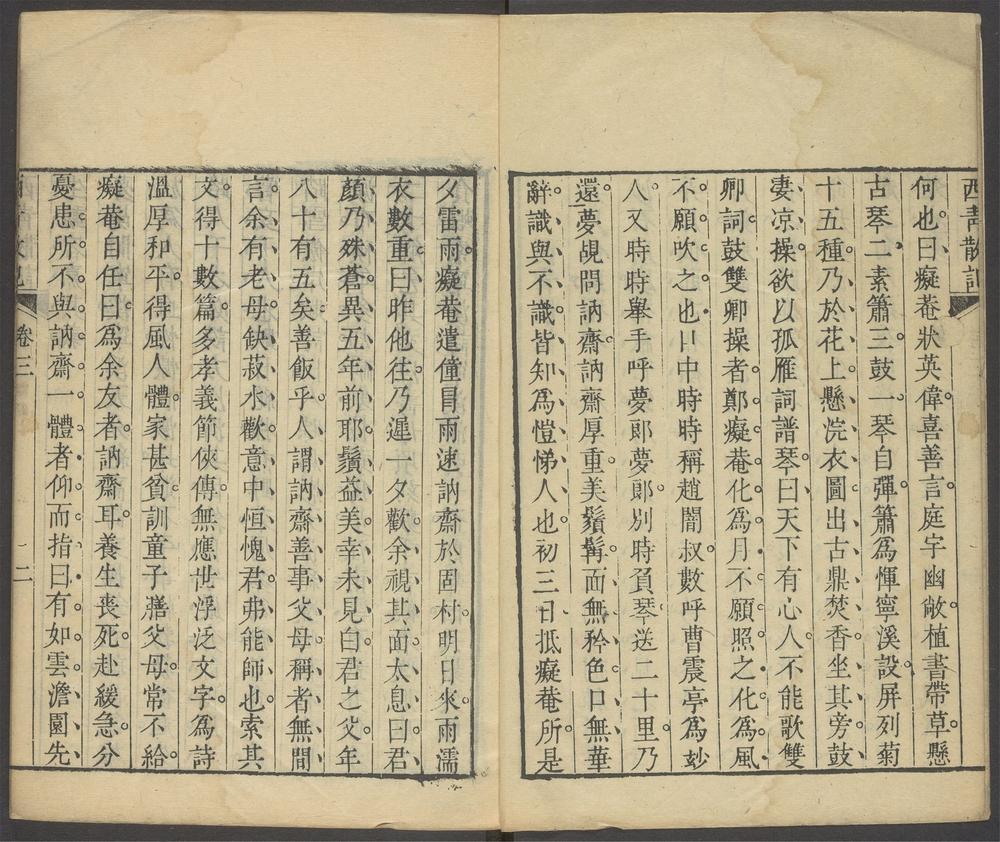 西青散記
何也曰癡菴狀英偉喜善言庭宇幽敞植書帶草懸
古琴二素簫三鼓一琴自彈簫爲惲寧溪設屏列菊
十五種乃於花上懸浣衣圖出古鼎焚香坐其旁鼓
凄凉操欲以孤雁詞譜琴曰天下有心人不能歌雙
卿詞鼓雙卿操者鄭癡菴化爲月不願照之化爲風
不願吹之也口中時時稱趙闇叔數呼曹震亭爲玅
人又時時舉手呼夢郎夢郎別時負琴送二十里乃
還夢覘問訥齋訥齋厚重美鬚髯面無矜色口無華
辭識與不識皆知爲愷悌人也初三日抵癡菴所是
夕雷雨癡菴遣僮冒雨速訥齋於固村明日來雨濡
衣數重曰昨他往乃遲一夕歡余視其面太息曰君
顏乃殊蒼異五年前耶鬚益美幸未見白君之父年
八十有五矣善飯乎人謂訥齋善事父母稱者無間
言余有老母缺菽水歡意中恒愧君弗能師也索其
文得十數篇多孝義節俠傳無應世浮泛文字爲詩
溫厚和平得風人體家甚貧訓童子膳父母常不給
癡菴自任曰爲余友者訥齋耳養生喪死赴緩急分
憂患所不與訥齋一體者仰而指曰有如雲澹園先
卷三
二